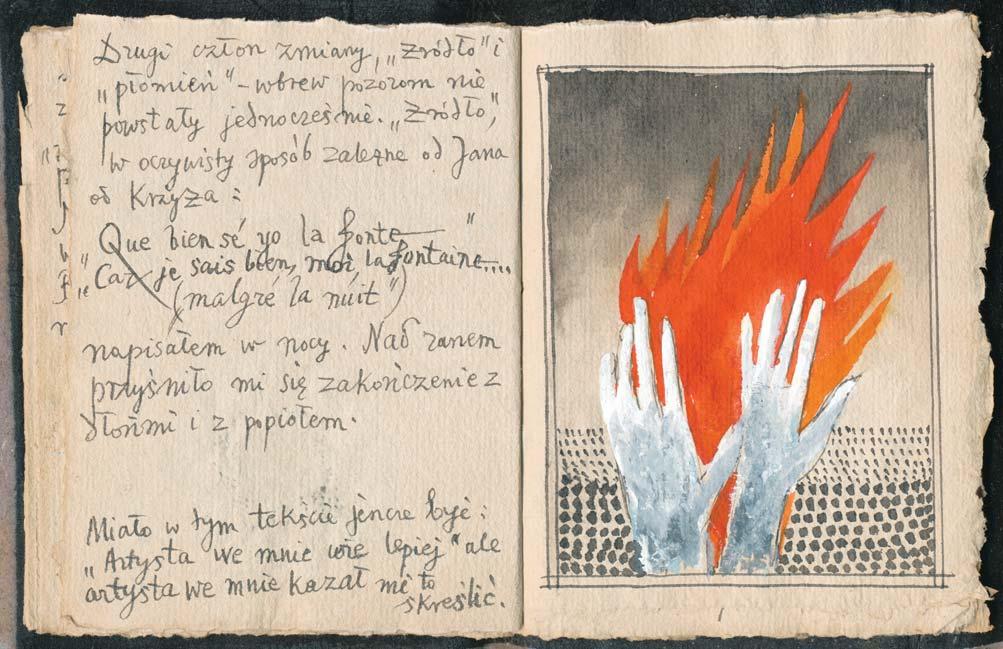 Drugi człon zmiany, „Źródło" i
„płomień" – wbrew pozorom nie
powstały jednocześnie. „Źródło",
w oczywisty sposób zależne od Jana
od Krzyża :
Que bien sé yo la fonte "
„Car je sais bien, moi, la fontaine....
(malgré la nuit")
napisałem w nocy. Nad ranem
przyśniło mi się zakończenie z
dłońmi i z popiołem.
Miało w tym tekście jeszcze być:
„Artysta we mnie wie lepiej" ale
artysta we mnie kazał mi to
skreślić.